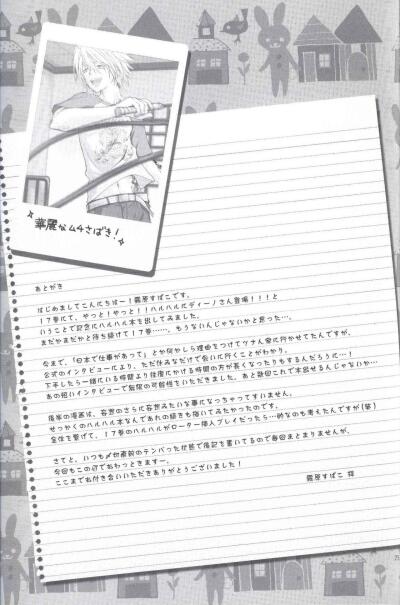 華麗なムチさばき！
あとがき
はじめましてこんにちはー！霧原すばこです。
17巻にて、やっと！やっと！！ハルハルにディーノさん登場！！！と
いうことで記念にハルハル本を出してみました。
まだかまだかと待ち続けて17巻……。もうないんじゃないかと思った…。
今まで、「日本で仕事があって」とか何かしら理由をつけてツナん家に行かせてたんですが、
公式のインタビューにより、ただ休みなだけで会いに行くことがわかり。
下手したら一緒にいる時間より往復にかける時間の方が長くなったりもするんだろうに…！
あの短いインタビューで無限の可能性をいただきました。あと数回これで本出せるんじゃないか…
後半の漫画は、妄想のさらに妄想みたいな事になっちゃってすいません。
せっかくのハルハル本なんであれの続きも描いてみたかったのです。
全体を繋げて、17巻のハルハルがローター挿入プレイだったら…的なのも考えてんですが(笑)
さてと、いつも〆切直前のテンパった状態で後記を書いてるので毎回まとまりませんが、
今回もこの辺でおわっときますー。
ここまでお付き合いいただきありがとうございました！
霧原すばこ 拝